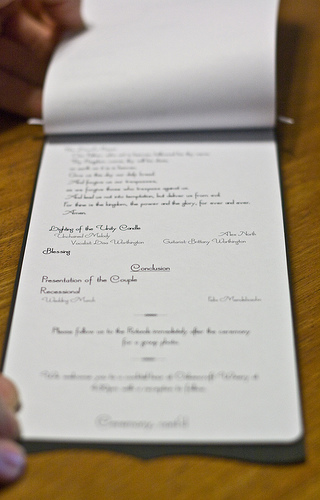 The Lord's Prayer
Our Father, who art in heaven, hallowed be thy name.
Thy kingdom come, thy will be done,
on earth as it is in heaven.
Give us this day our daily bread.
And forgive us our trespasses,
as we forgive those who trespass against us.
And lead us not into temptation, but deliver us from evil.
For thine is the kingdom, the power and the glory, for ever and ever.
Amen.
Lighting of the Unity Candle
Unchained Melody Alex North
Vocalist: Worthington Guitarist: Brittany Worthington
Blessing
Conclusion
Presentation of the Couple
Recessional
Wedding March Mendelssohn
Please follow us to the Rotunda immediately after the ceremony
for a group photo.
We welcome you to a cocktail hour at Winery at
with a reception to follow.
Ceremony